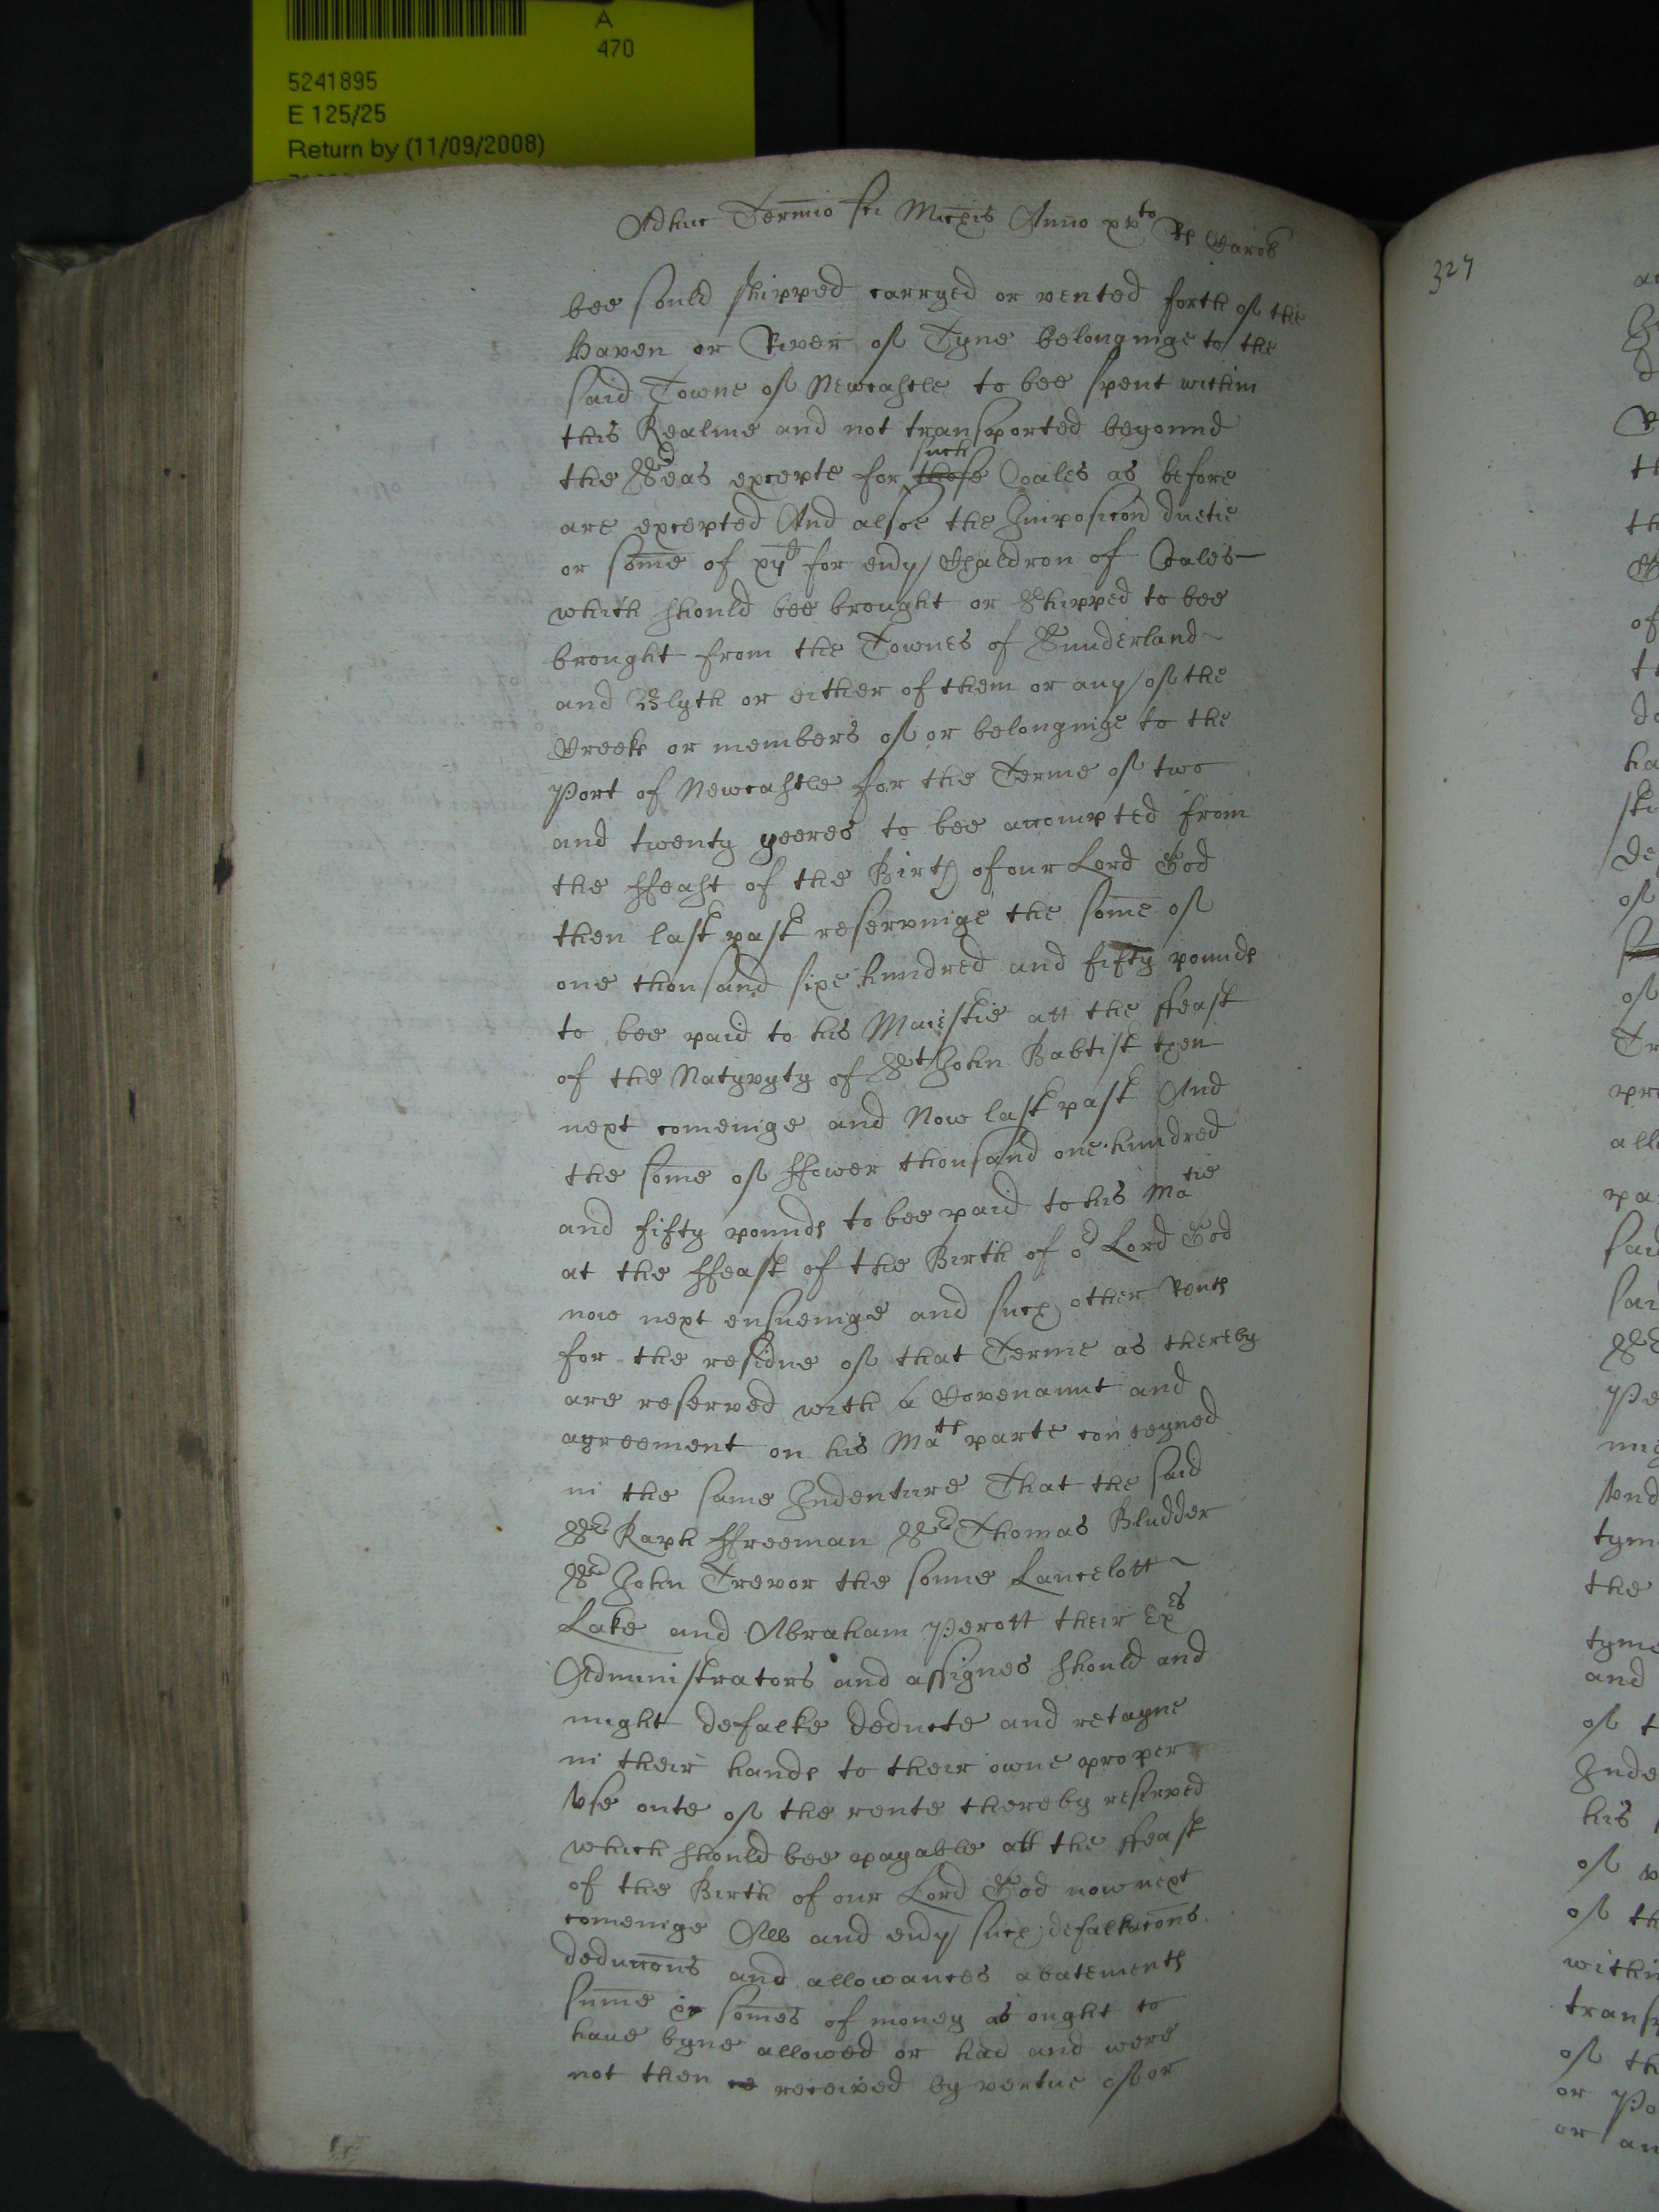 A
470
5241895
E 125/25
Return by (11/09/2008)
Adhuc Termio sci Michis Anno xvto Rs Caroli
bee sould shipped carryed or vented forth of the
Haven or River of Tyne belonginge to the
said Towne of Newcastle to bee spent within
this Realme and not transported beyonnd
the Seas excepte for those such Coales as before
are excepted And alsoe the Imposicon duetie
or some of xijd for euy Chaldron of Coales
which should bee brought or Shipped to bee
brought from the Townes of Sunderland
and Blyth or either of them or any of the
Creeks or members of or belonginge to the
Port of Newcastle for the Terme of two
and twenty yeeres to bee accompted from
the ffeast of the Birth of our Lord God
then last past reservinge the some of
one thousand sixe hundred and fifty pounds
to bee paid to his Maiestie att the ffeast
of the Natyvyty of St John Babtist then
next comeinge and Now last past And
the some of ffower thousand one hundred
and fifty pounds to bee paid to his Matie
at the ffeast of the Birth of or Lord God
now next ensueinge and such other Rents
for the residue of that Terme as thereby
are reserved with a Covenannt and
agreement on his Mats parte conteyned
in the same Indenture That the said
Sr Raph ffreeman Sr Thomas Bludder
Sr John Trevor the sonne Lancelott
Lake and Abraham Perott their Exes
Administrators and assignes should and
might defalke deducte and retayne
in their hands to their owne proper
vse oute of the rente thereby reserved
which should bee payable att the ffeast
of the Birth of our Lord God now next
comeinge All and euy such defalkacons
deduccons and allowances abatements
sume or somes of money as ought to
haue byne allowed or had and were
not then re received by vertue of or
327